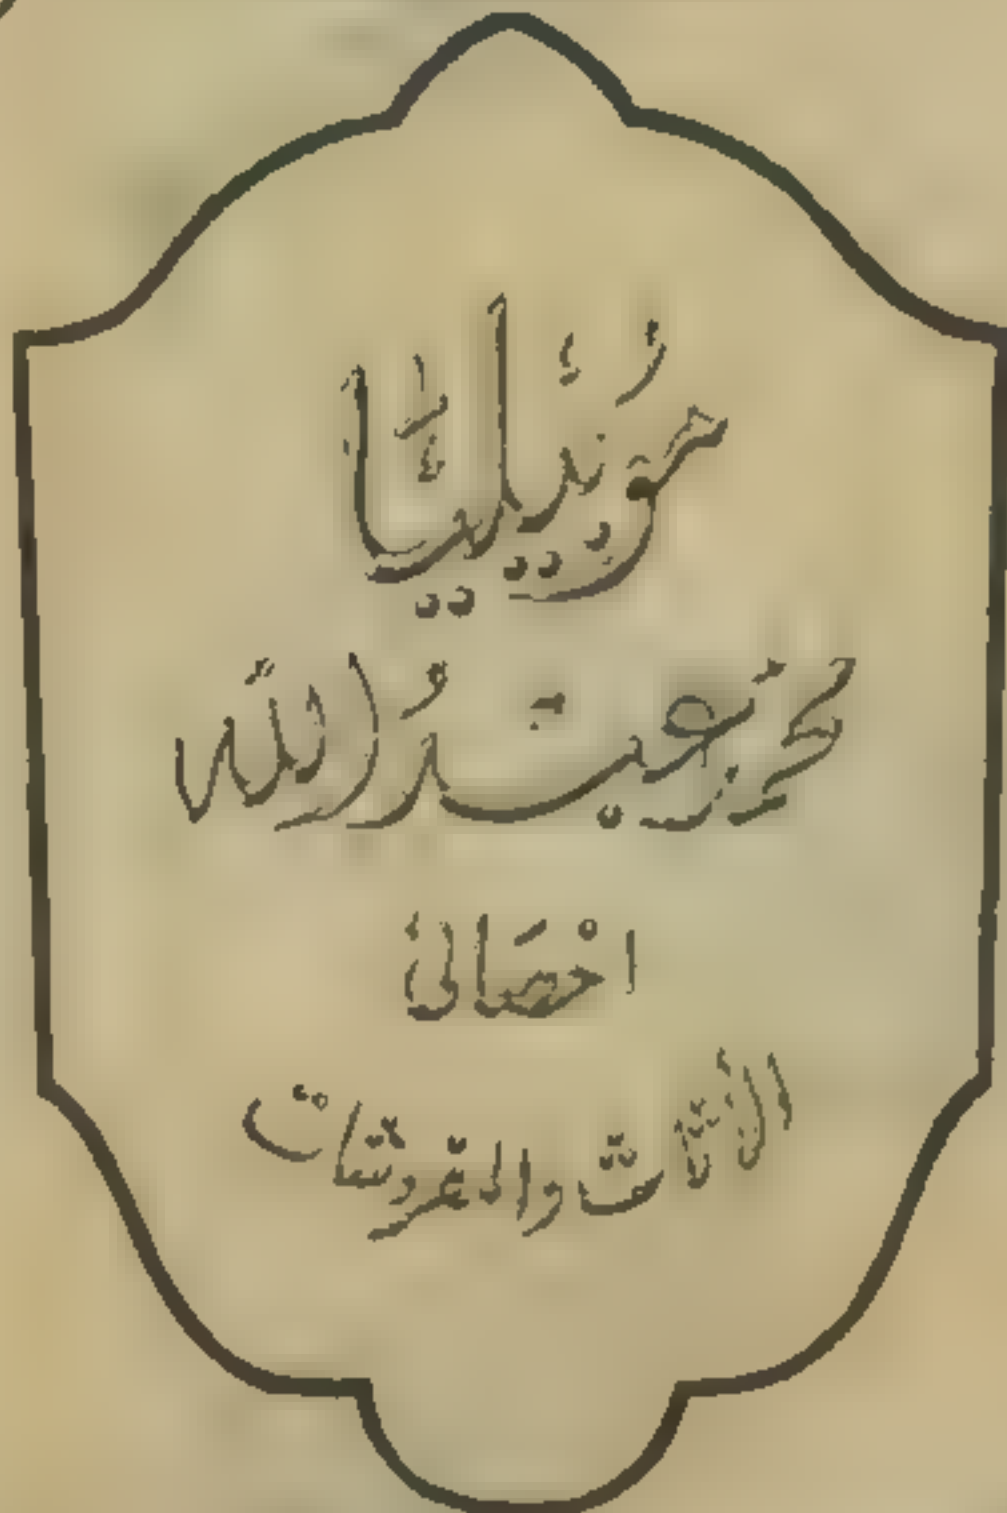 موبيليا
محرز عبد الله
اخصائى
الأثاث والمفروشات